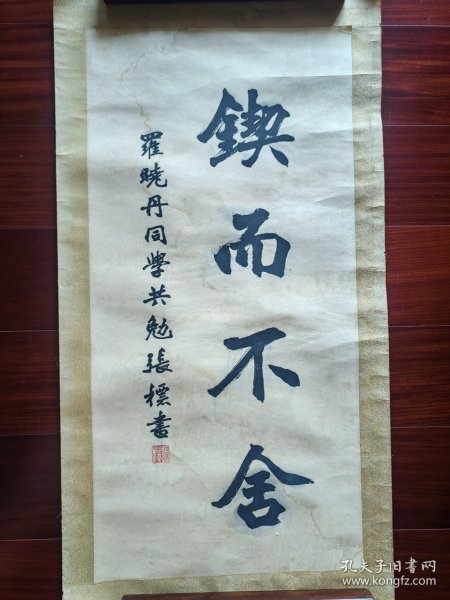 鍥而不舍
羅曉丹同學共勉張標書
孔夫子旧书网
www.kongfz.com